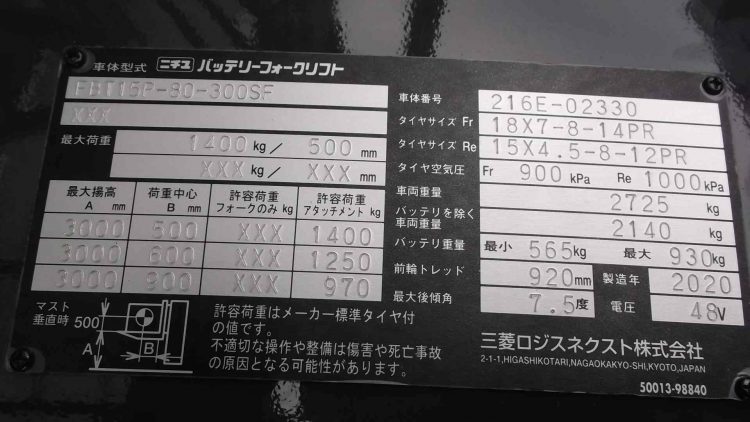 車体型式 ニチユ バッテリーフォークリフト
FBT15P-80-300SF
XXX
最大荷重 1400 kg／ 500 mm
XXX kg／ XXX mm
最大揚高 A mm 荷重中心 B mm 許容荷重 フォークのみ kg 許容荷重 アタッチメント kg
3000 500 XXX 1400
3000 600 XXX 1250
3000 900 XXX 970
マスト垂直時 500 A B
許容荷重はメーカー標準タイヤ付
の値です。
不適切な操作や整備は傷害や死亡事故
の原因となる可能性があります。
車体番号 216E-02330
タイヤサイズ Fr 18X7-8-14PR
タイヤサイズ Re 15X4.5-8-12PR
タイヤ空気圧 Fr 900 kPa Re 1000 kPa
車両重量 2725 kg
バッテリを除く車両重量 2140 kg
バッテリ重量 最小 565 kg 最大 930 kg
前輪トレッド 920 mm 製造年 2020
最大後傾角 7.5 度 電圧 48 V
三菱ロジスネクスト株式会社
2-1-1,HIGASHIKOTARI,NAGAOKAKYO-SHI,KYOTO,JAPAN
50013-98840